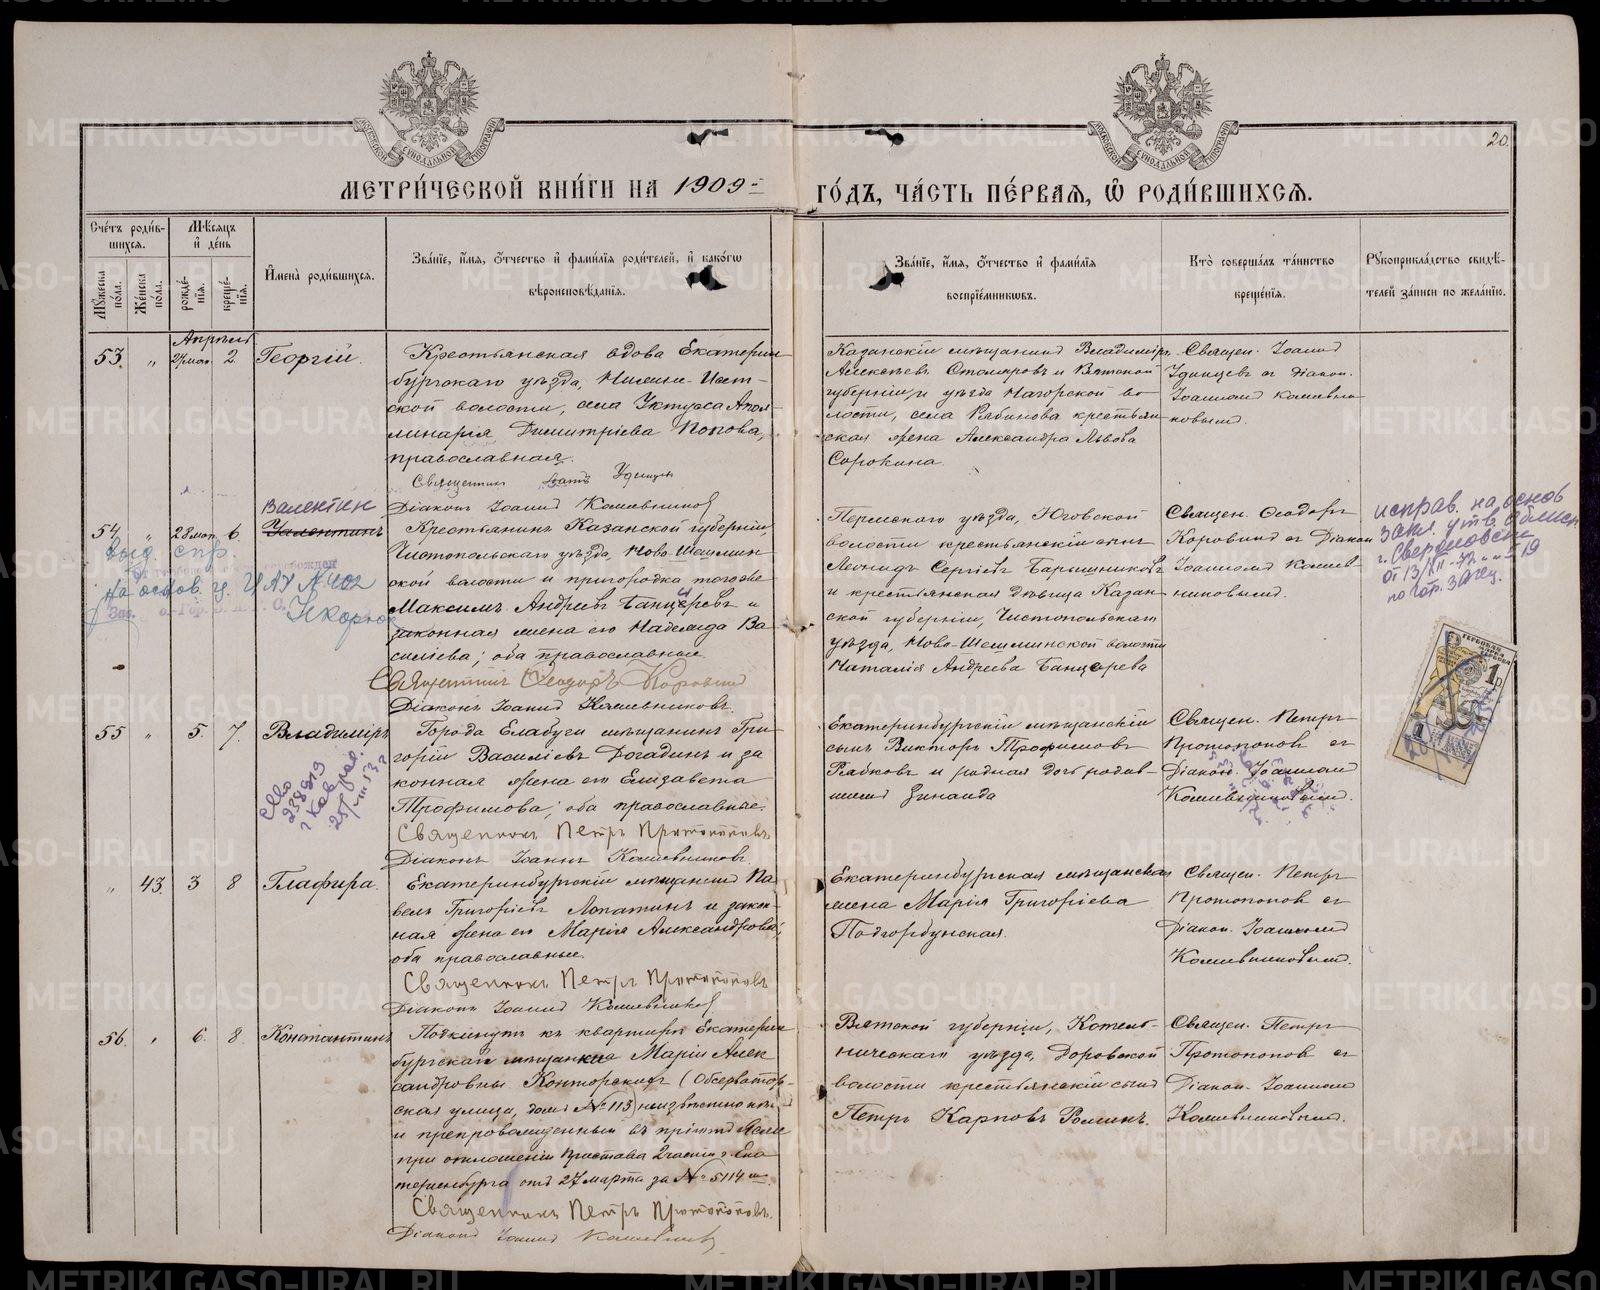 20.
МЕТРИ́ЧЕСКОЙ КНИ́ГИ НА 1909 ГО́ДЪ, ЧА́СТЬ ПЕ́РВАЯ, Ѡ҆ РОДИ́ВШИХСЯ.
Сче́тъ роди́вшихся.
Мꙋ́жеска по́ла.
Же́нска по́ла.
Мѣ́сяцъ и҆ де́нь
рожде́нїя.
креще́нїя.
И҆мена̀ роди́вшихся.
Зва́нїе, и҆́мя, ѻ҆́тчество и҆ фами́лїя роди́телей, и҆ како́гѡ
вѣроисповѣ́данїя.
Зва́нїе, и҆́мя, ѻ҆́тчество и҆ фами́лїя
воспрїе́мникѡвъ.
Кто̀ соверша́лъ та́инство
креще́нїя.
Рꙋкоприкла́дство свидѣ́-
телей за́писи по жела́нїю.
Апрѣль
53 " 27 мар. 2. Георгій.
Крестьянская вдова Екатерин
бургскаго уѣзда, Нижне-Исет-
ской волости, села Уктуса Апол
линарія Димитріева Попова,
православная.
Священник Іоанн
Діаконъ Іоаннъ Кошевников
Казанскій мѣщанинъ Владиміръ
Алексѣевъ Столяровъ и Вятской
губерніи и уѣзда Нагорской во
лости, села Рябинова крестьян
ская жена Александра Львова
Сорокина.
Священ. Іоаннъ
съ Діакон.
Іоанномъ Кошевни
ковымъ.
Валентин
54 " 28 мар. 6. Валентинъ
Крестьянинъ Казанской губерніи,
Чистопольскаго уѣзда, Ново-Шешмин
ской волости и пригородка тогоже
Максимъ Андреевъ Банцеревъ и
законная жена его Надежда Ва
силіева; оба православные
Священник Ѳеодоръ Коровин
Діаконъ Іоаннъ Кошевниковъ.
Пермскаго уѣзда, Юговской
волости крестьянскій сынъ
Леонидъ Сергіевъ Барышниковъ
и крестьянская дѣвица Казан
ской губерніи, Чистопольскаго
уѣзда, Ново-Шешминской волости
Наталія Андреева Банцерева
Священ. Ѳеодоръ
Коровинъ съ Діакон
Іоанномъ Кошев
никовымъ.
исправ. на основ
закл. утв. облисп
г. Свердловск
от 13/XII-72
по гор. Загсу.
выд. спр.
на основ.
55 " 5. 7. Владиміръ
Города Елабуги мѣщанинъ Гри
горій Василіевъ Догадинъ и за
конная жена его Елизавета
Трофимова; оба православные.
Священникъ Петръ Протопоповъ
Діаконъ Іоаннъ Кошевниковъ.
Екатеринбургскій мѣщанскій
сынъ Викторъ Трофимовъ
Рябковъ и родная дочь родив-
шихъ Зинаида
Священ. Петръ
Протопопов съ
Діакон. Іоанномъ
Кошевниковымъ.
ГЕРБОВАЯ МАРКА
1 р.
" 43. 3 8 Глафира.
Екатеринбургскій мѣщанинъ Па
велъ Григоріевъ Лопатинъ и закон-
ная жена его Марія Александрова,
оба православные.
Священникъ Петръ Протопоповъ
Діаконъ Іоаннъ Кошевников
Екатеринбургская мѣщанская
жена Марія Григоріева
Подгорбунская.
Священ. Петръ
Протопопов съ
Діакон. Іоанномъ
Кошевниковымъ.
56. " 6. 8. Константинъ
Подкинутъ къ квартирѣ Екатерин
бургской мѣщанки Маріи Алек
сандровны Конторскихъ (Обсерватор-
ская улица, домъ № 113) неизвѣстно кѣмъ
и препровожденный въ пріютъ Ясли
при отношеніи Пристава 2 части г. Ека
теринбурга отъ 27 марта за № 5114
Священникъ Петръ Протопоповъ.
Діаконъ Іоаннъ Кошевников
Вятской губерніи, Котель-
ническаго уѣзда, Доровской
волости крестьянскій сынъ
Петръ Карповъ Роминъ.
Священ. Петръ
Протопопов съ
Діакон. Іоанномъ
Кошевниковымъ.
METRIKI.GASO-URAL.RU